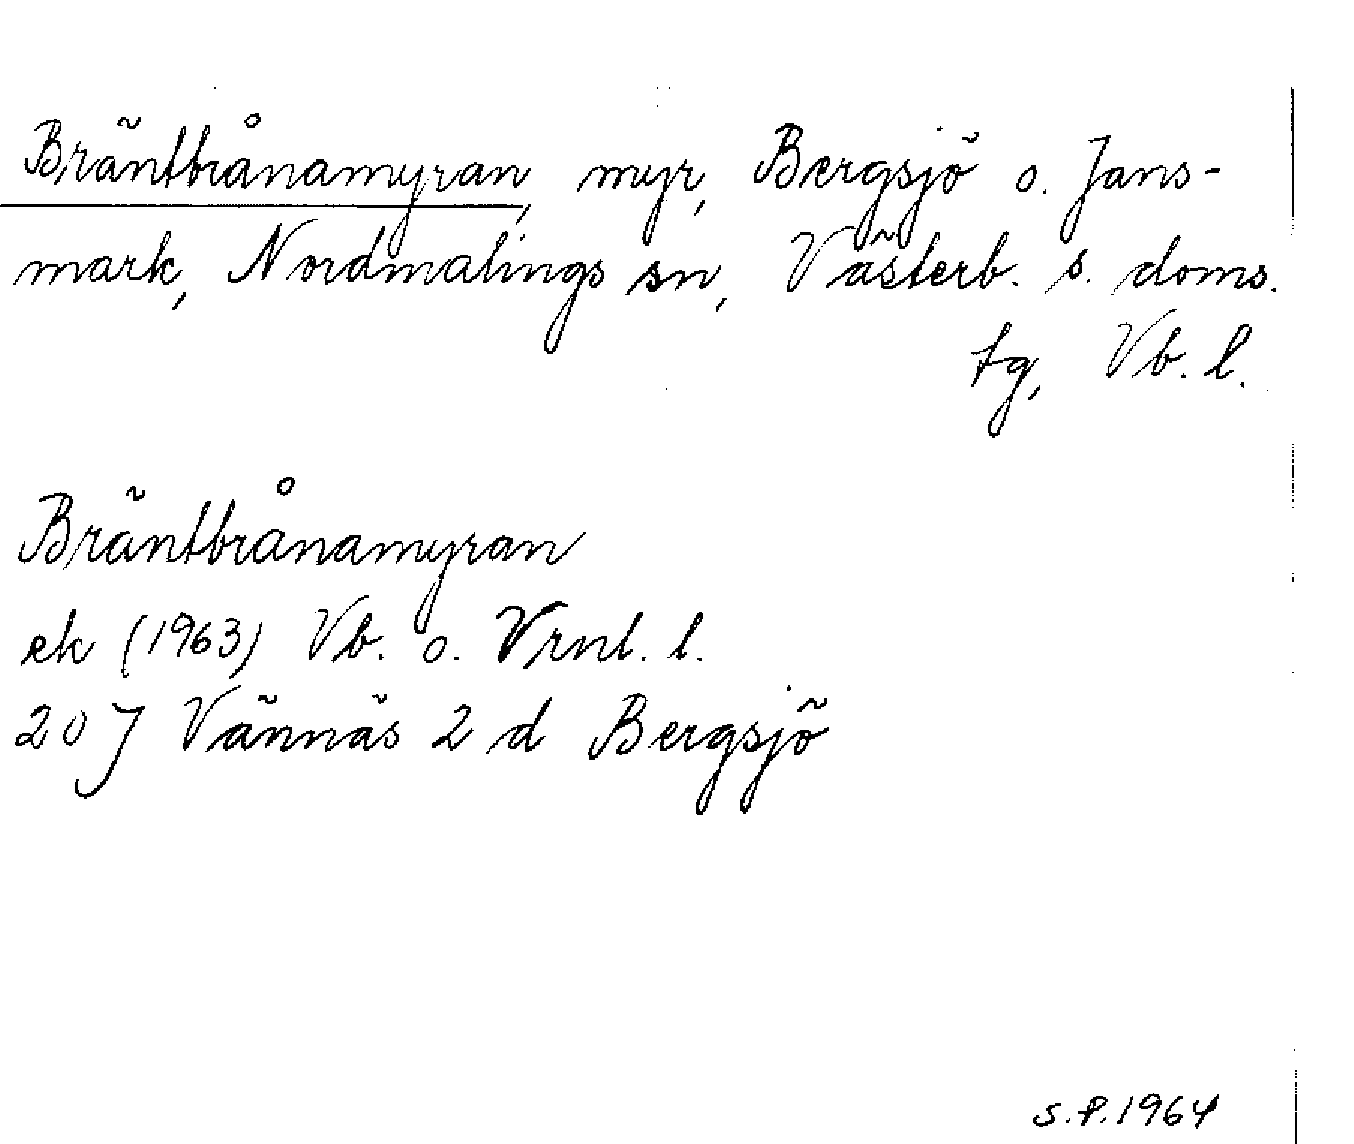 Bräntbrånamyran, myr, Bergsjö o. Jans-
mark, Nordmalings sn, Västerb. s. doms.
tg, Vb. l.
Bräntbrånamyran
ek (1963) Vb. o. Vrnl. l.
20 J Vännäs 2 d Bergsjö
S.P.1964